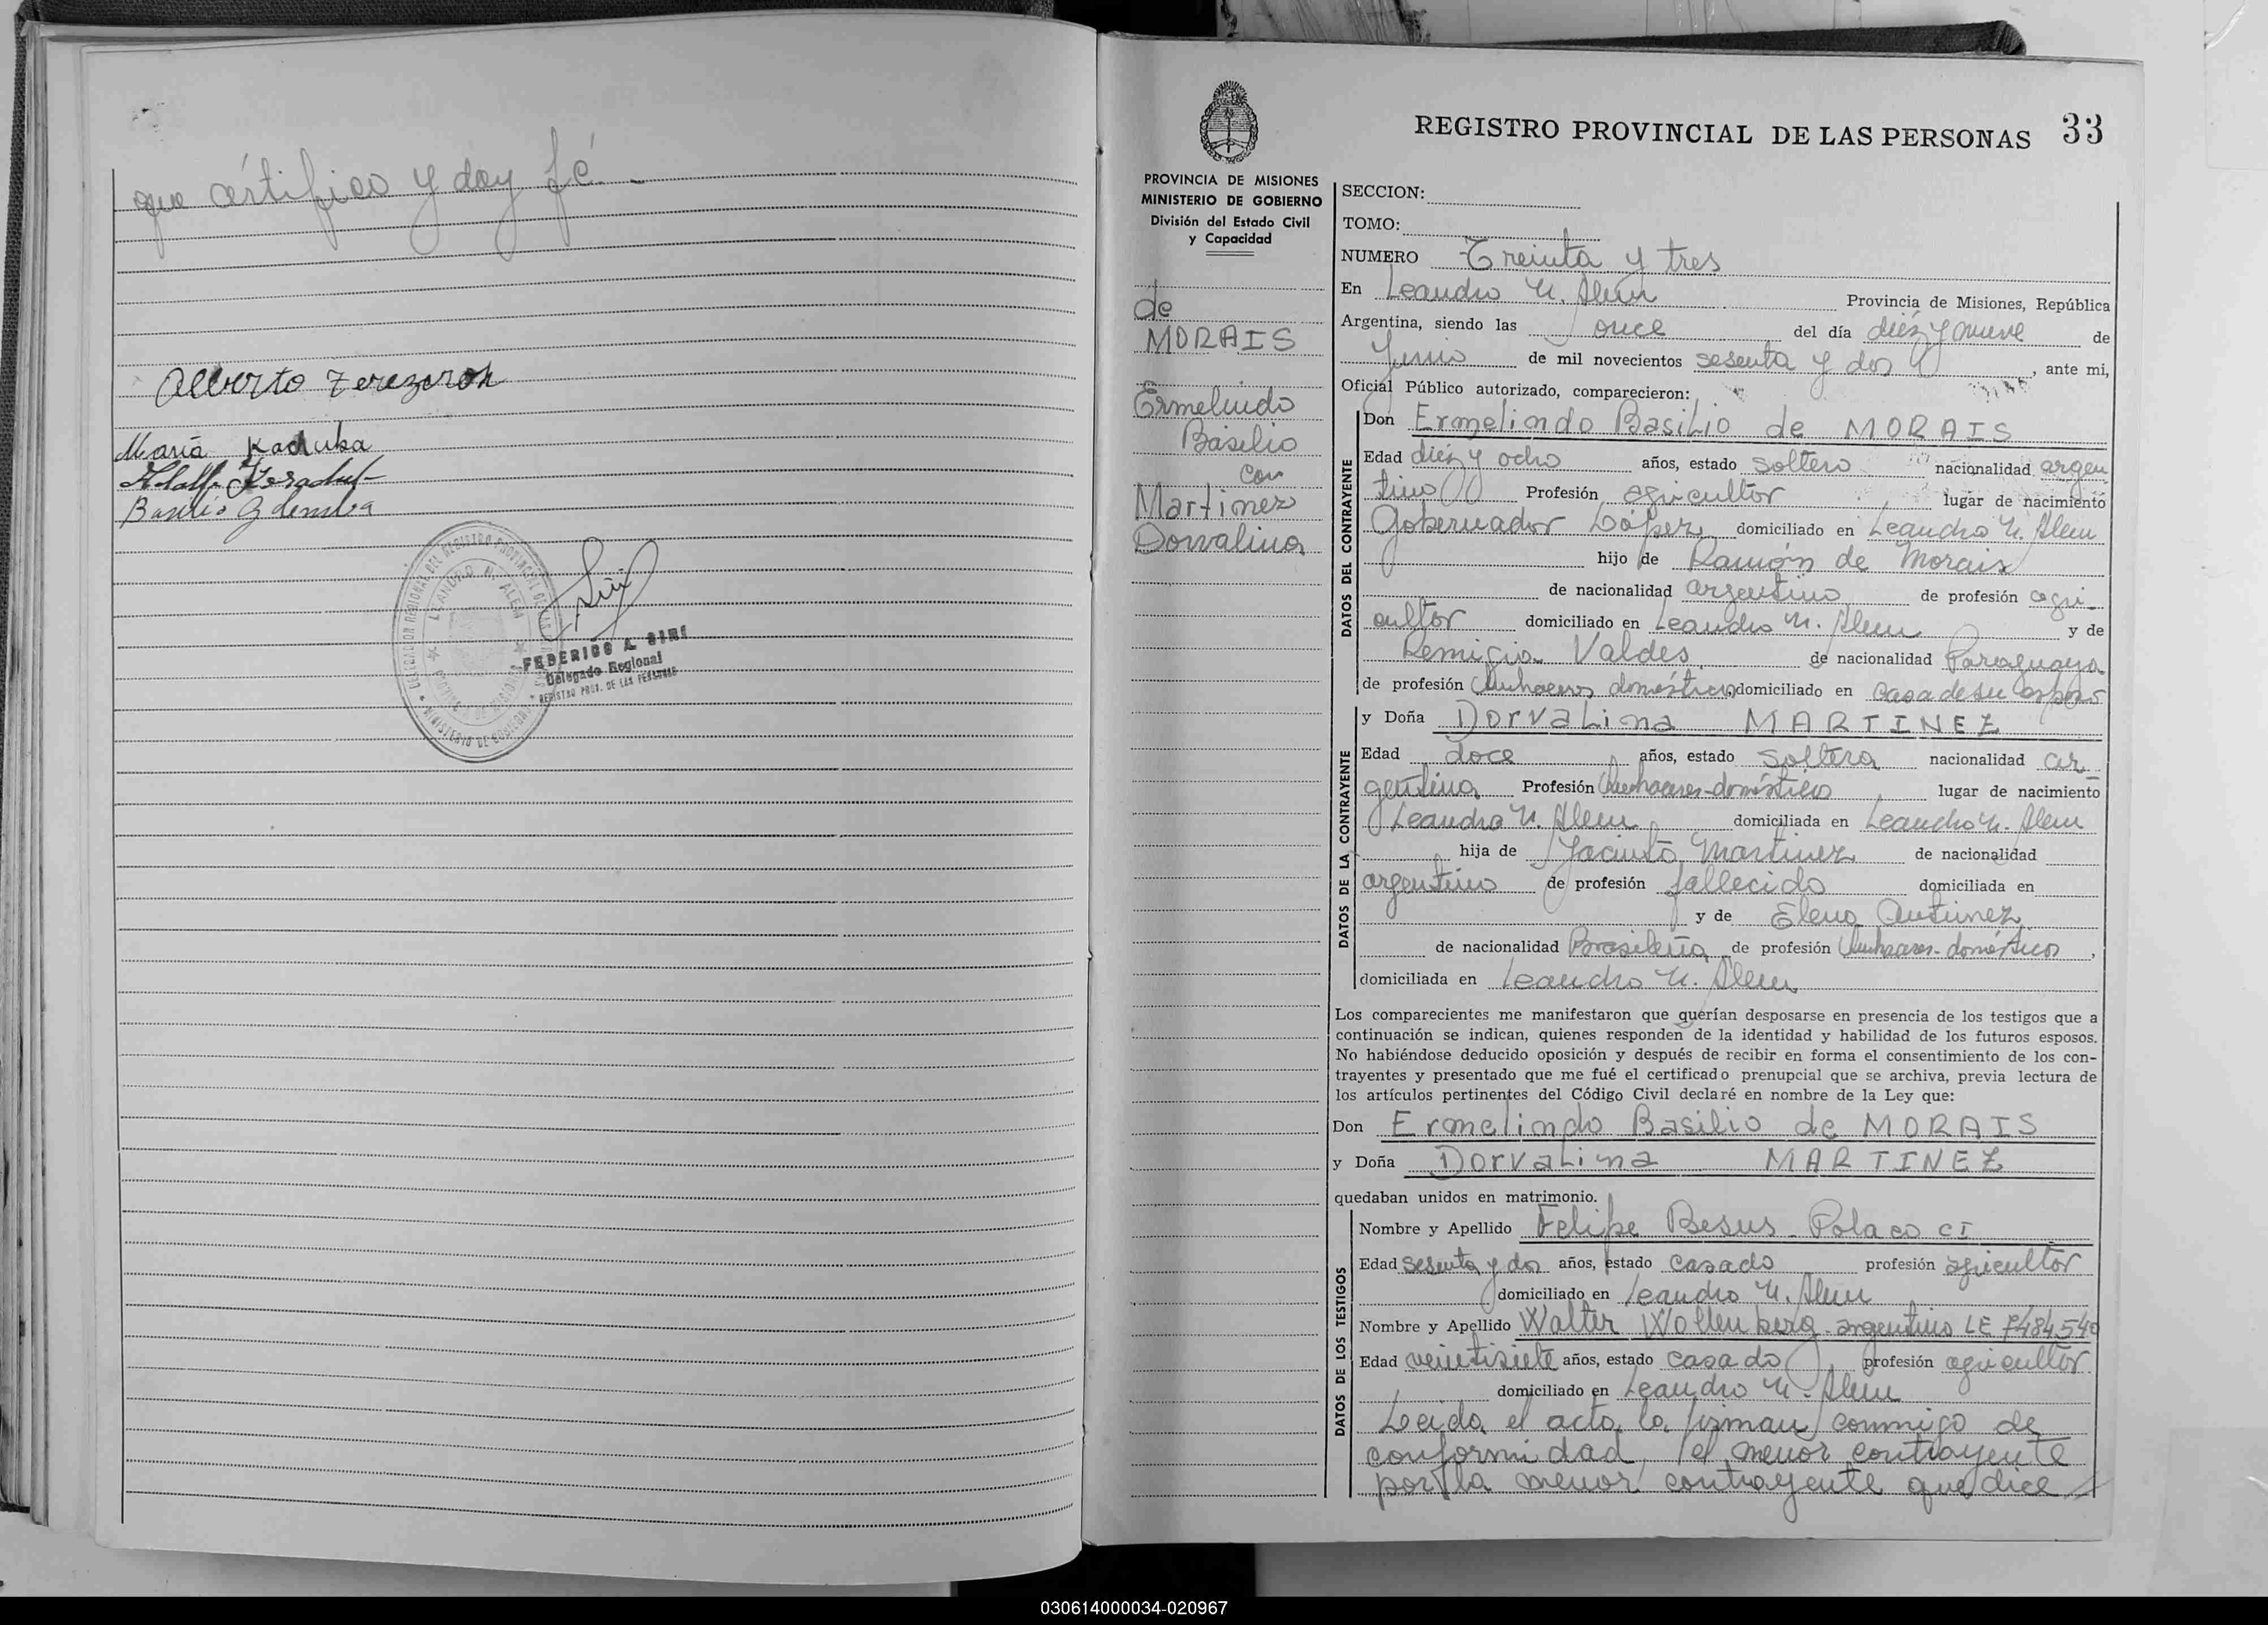 que certifico y doy fé.-
Alberto Zerezeron
María Kaduba
Basilio
DELEGACION REGIONAL DEL REGISTRO PROVINCIAL DE LAS
LEANDRO N. ALEM
PROVINCIA DE MISIONES
MINISTERIO DE GOBIERNO
FEDERICO A. SIRI
Delegado Regional
REGISTRO PROV. DE LAS PERSONAS
REGISTRO PROVINCIAL DE LAS PERSONAS 33
PROVINCIA DE MISIONES
MINISTERIO DE GOBIERNO
División del Estado Civil
y Capacidad
de
MORAIS
Ermelindo
Basilio
con
Martinez
Dorvalina
SECCION:
TOMO:
NUMERO Treinta y tres
En Leandro N. Alem Provincia de Misiones, República
Argentina, siendo las once del día diéz y nueve de
Junio de mil novecientos sesenta y dos, ante mi,
Oficial Público autorizado, comparecieron:
DATOS DEL CONTRAYENTE
Don Ermelindo Basilio de MORAIS
Edad diéz y ocho años, estado soltero nacionalidad argen
tino Profesión agricultor lugar de nacimiento
Gobernador López domiciliado en Leandro N. Alem
hijo de Ramón de Morais
de nacionalidad argentino de profesión agri-
cultor domiciliado en Leandro N. Alem y de
Remigia Valdes de nacionalidad Paraguaya
de profesión Quehaceres domésticos domiciliado en casa de su esposo
DATOS DE LA CONTRAYENTE
y Doña Dorvalina MARTINEZ
Edad doce años, estado soltera nacionalidad ar-
gentina Profesión Quehaceres-domésticos lugar de nacimiento
Leandro N. Alem domiciliada en Leandro N. Alem
hija de Jacinto Martinez de nacionalidad
argentino de profesión fallecido domiciliada en
y de Elena Antunez
de nacionalidad Brasileña de profesión Quehaceres-domésticos,
domiciliada en Leandro N. Alem
Los comparecientes me manifestaron que querían desposarse en presencia de los testigos que a
continuación se indican, quienes responden de la identidad y habilidad de los futuros esposos.
No habiéndose deducido oposición y después de recibir en forma el consentimiento de los con-
trayentes y presentado que me fué el certificado prenupcial que se archiva, previa lectura de
los artículos pertinentes del Código Civil declaré en nombre de la Ley que:
Don Ermelindo Basilio de MORAIS
y Doña Dorvalina MARTINEZ
quedaban unidos en matrimonio.
DATOS DE LOS TESTIGOS
Nombre y Apellido Felipe Besus - Polaco CI
Edad sesenta y dos años, estado casado profesión agricultor
domiciliado en Leandro N. Alem
Nombre y Apellido Walter Woltenberg - argentino LE 7484540
Edad veintisiete años, estado casado, profesión agricultor
domiciliado en Leandro N. Alem
Leida el acta la firman conmigo de
conformidad, el menor contrayente
por la menor contrayente que dice
030614000034-020967